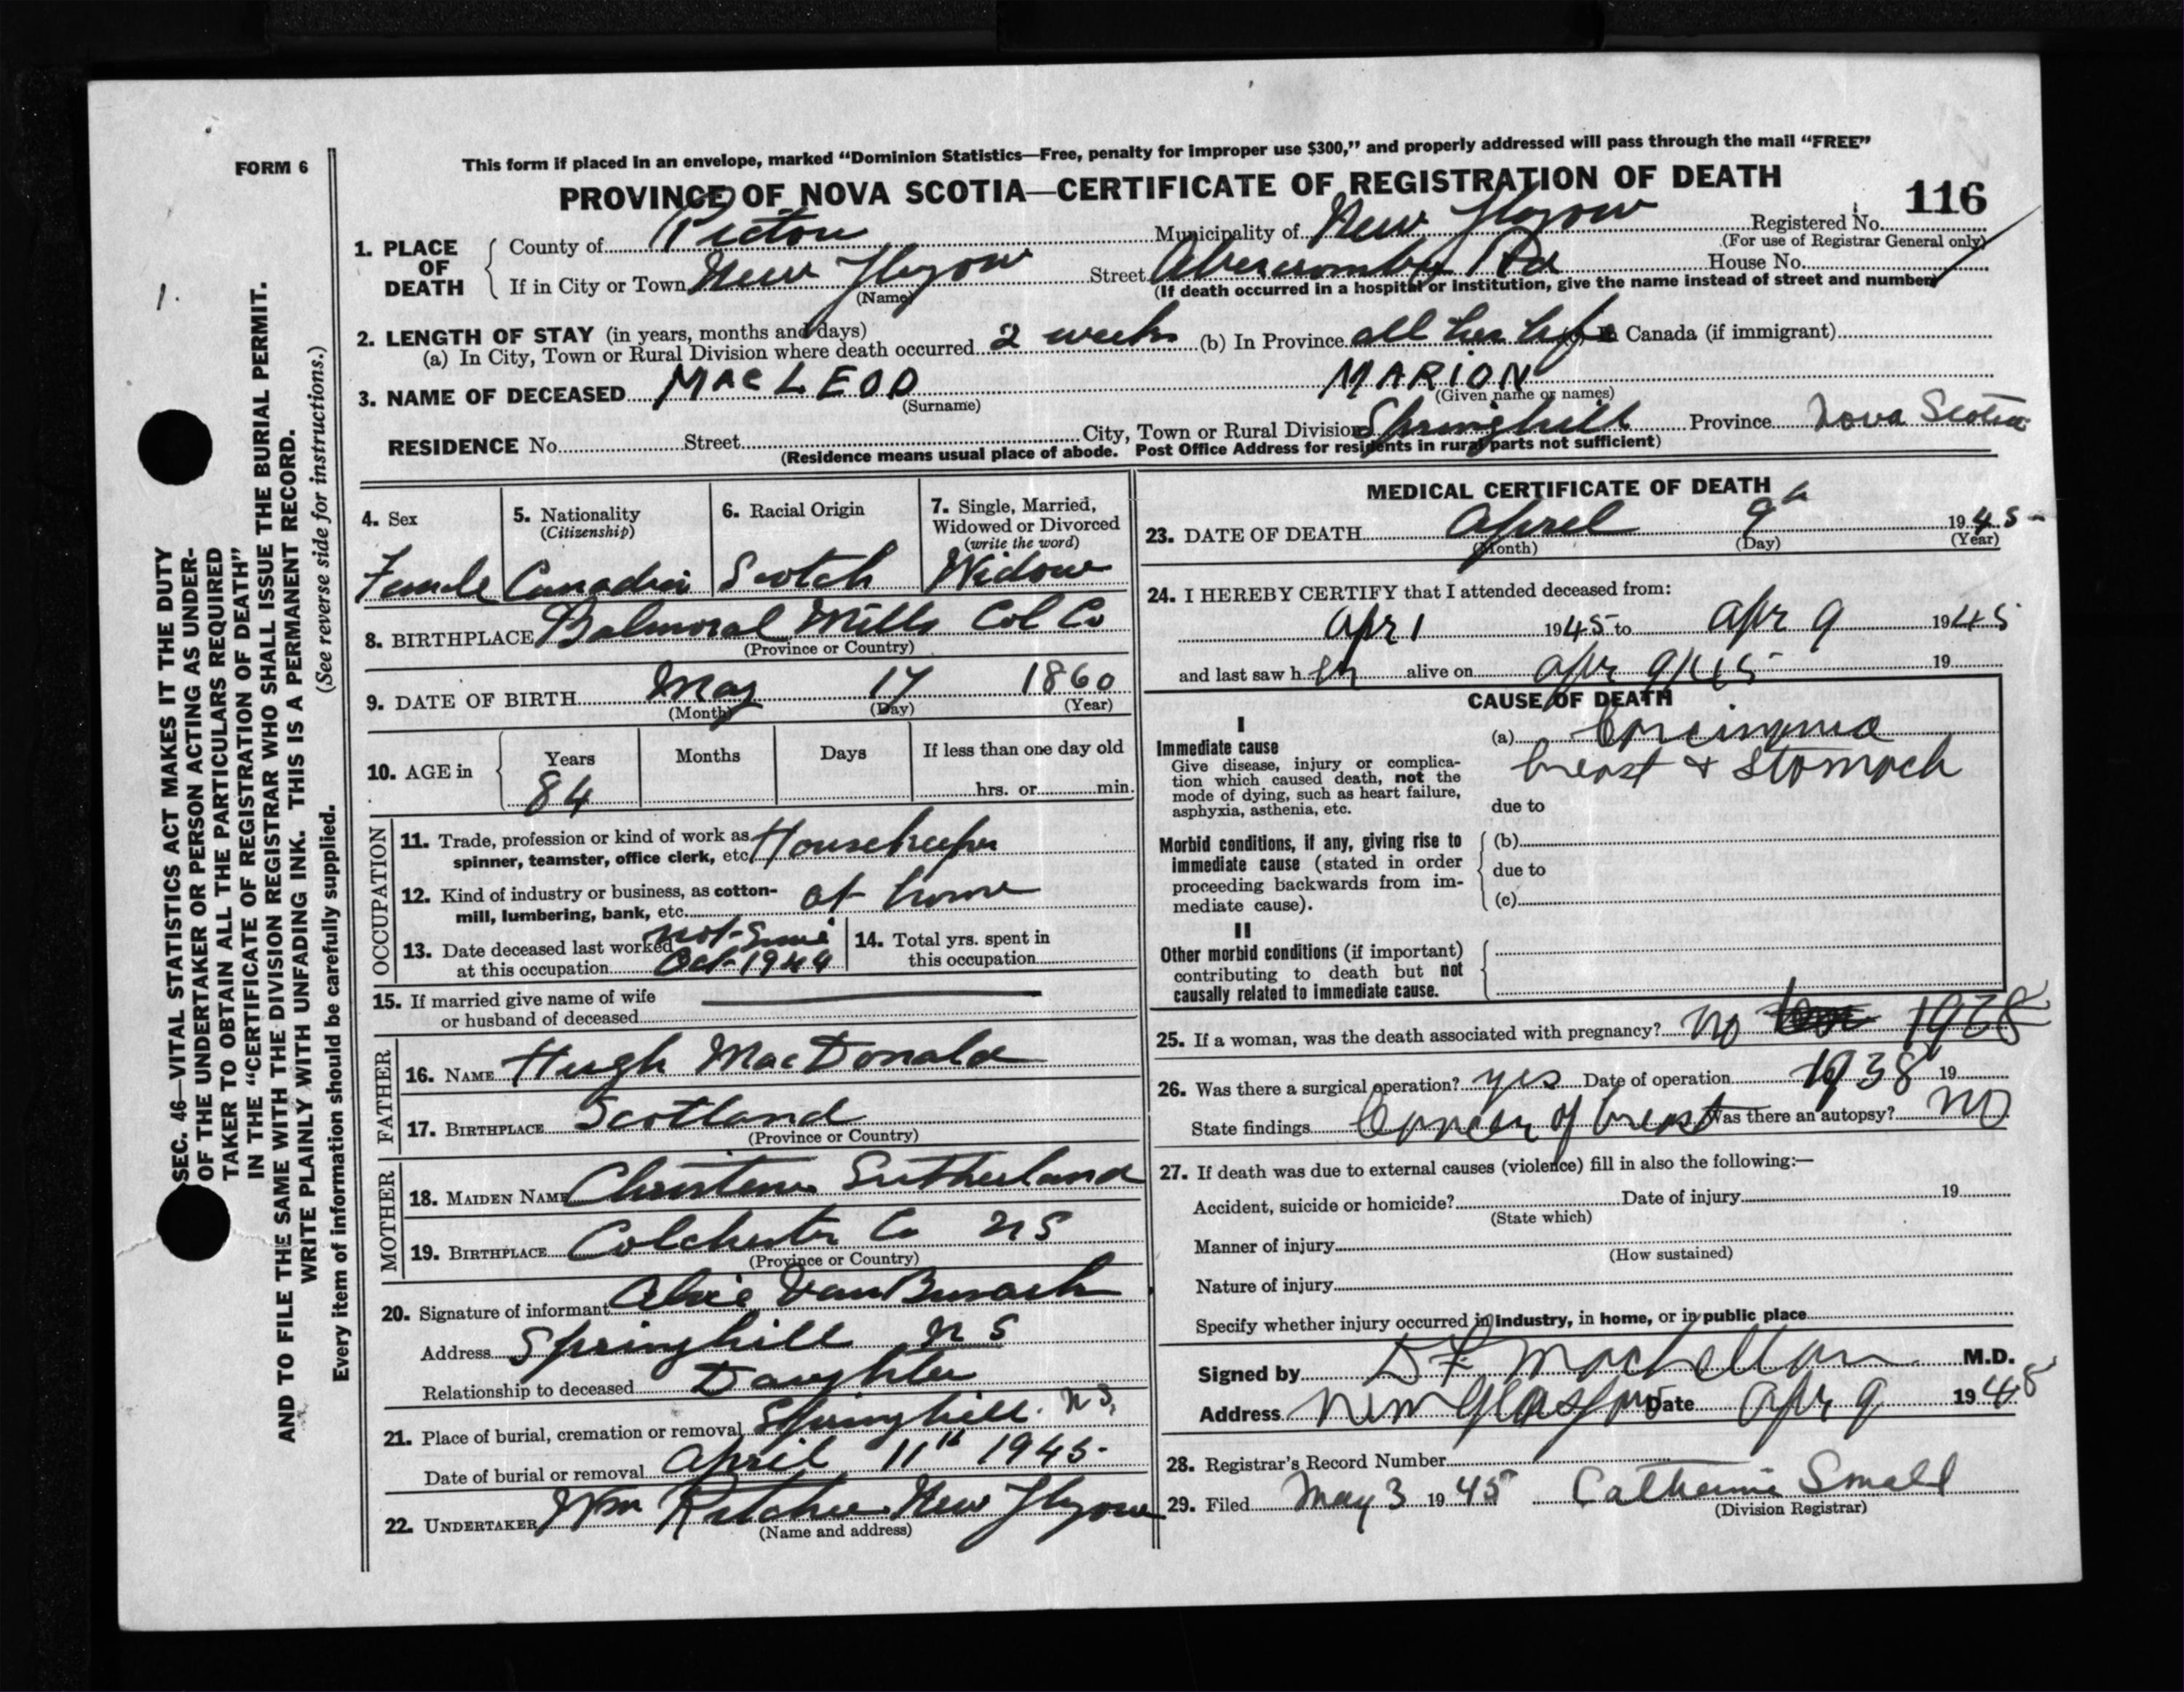 FORM 6
This form if placed in an envelope, marked “Dominion Statistics—Free, penalty for improper use $300,” and properly addressed will pass through the mail “FREE”
PROVINCE OF NOVA SCOTIA—CERTIFICATE OF REGISTRATION OF DEATH
116
1. PLACE OF DEATH
County of Pictou Municipality of New Glasgow Registered No.
(For use of Registrar General only)
If in City or Town New Glasgow Street Abercomby Rd House No.
(Name) (If death occurred in a hospital or institution, give the name instead of street and number)
2. LENGTH OF STAY (in years, months and days)
(a) In City, Town or Rural Division where death occurred 2 weeks (b) In Province all her life In Canada (if immigrant)
3. NAME OF DECEASED MACLEOD MARION
(Surname) (Given name or names)
RESIDENCE No. Street City, Town or Rural Division Springhill Province Nova Scotia
(Residence means usual place of abode. Post Office Address for residents in rural parts not sufficient)
4. Sex Female
5. Nationality (Citizenship) Canadian
6. Racial Origin Scotch
7. Single, Married, Widowed or Divorced (write the word) Widow
8. BIRTHPLACE Balmoral Mills Col Co
(Province or Country)
9. DATE OF BIRTH May 17 1860
(Month) (Day) (Year)
10. AGE in Years Months Days If less than one day old
84 hrs. or min.
OCCUPATION
11. Trade, profession or kind of work as spinner, teamster, office clerk, etc. Housekeeper
12. Kind of industry or business, as cotton-mill, lumbering, bank, etc. at home
13. Date deceased last worked at this occupation not since Oct 1944
14. Total yrs. spent in this occupation
15. If married give name of wife or husband of deceased
FATHER
16. NAME Hugh MacDonald
17. BIRTHPLACE Scotland
(Province or Country)
MOTHER
18. MAIDEN NAME Christena Sutherland
19. BIRTHPLACE Colchester Co NS
(Province or Country)
20. Signature of informant
Address Springhill N S
Relationship to deceased Daughter
21. Place of burial, cremation or removal Springhill. N.S.
Date of burial or removal April 11" 1945
22. UNDERTAKER Wm Ritchie New Glasgow
(Name and address)
MEDICAL CERTIFICATE OF DEATH
23. DATE OF DEATH April 9th 1945
(Month) (Day) (Year)
24. I HEREBY CERTIFY that I attended deceased from:
Apr 1 1945 to Apr 9 1945
and last saw her alive on Apr 9 19
CAUSE OF DEATH
I
Immediate cause
Give disease, injury or complication which caused death, not the mode of dying, such as heart failure, asphyxia, asthenia, etc.
(a) Carcinoma
breast & stomach
due to
Morbid conditions, if any, giving rise to immediate cause (stated in order proceeding backwards from immediate cause).
(b)
due to
(c)
II
Other morbid conditions (if important) contributing to death but not causally related to immediate cause.
25. If a woman, was the death associated with pregnancy? No
26. Was there a surgical operation? yes Date of operation 1938 19
State findings Cancer of breast Was there an autopsy? No
27. If death was due to external causes (violence) fill in also the following:—
Accident, suicide or homicide? Date of injury 19
(State which)
Manner of injury
(How sustained)
Nature of injury
Specify whether injury occurred in industry, in home, or in public place
Signed by D F MacLellan M.D.
Address New Glasgow Date Apr 9 1945
28. Registrar's Record Number
29. Filed May 3 1945 Catherine Small
(Division Registrar)
1.
SEC. 46—VITAL STATISTICS ACT MAKES IT THE DUTY
OF THE UNDERTAKER OR PERSON ACTING AS UNDER-
TAKER TO OBTAIN ALL THE PARTICULARS REQUIRED
IN THE “CERTIFICATE OF REGISTRATION OF DEATH”
AND TO FILE THE SAME WITH THE DIVISION REGISTRAR WHO SHALL ISSUE THE BURIAL PERMIT.
WRITE PLAINLY WITH UNFADING INK. THIS IS A PERMANENT RECORD.
Every item of information should be carefully supplied. (See reverse side for instructions.)